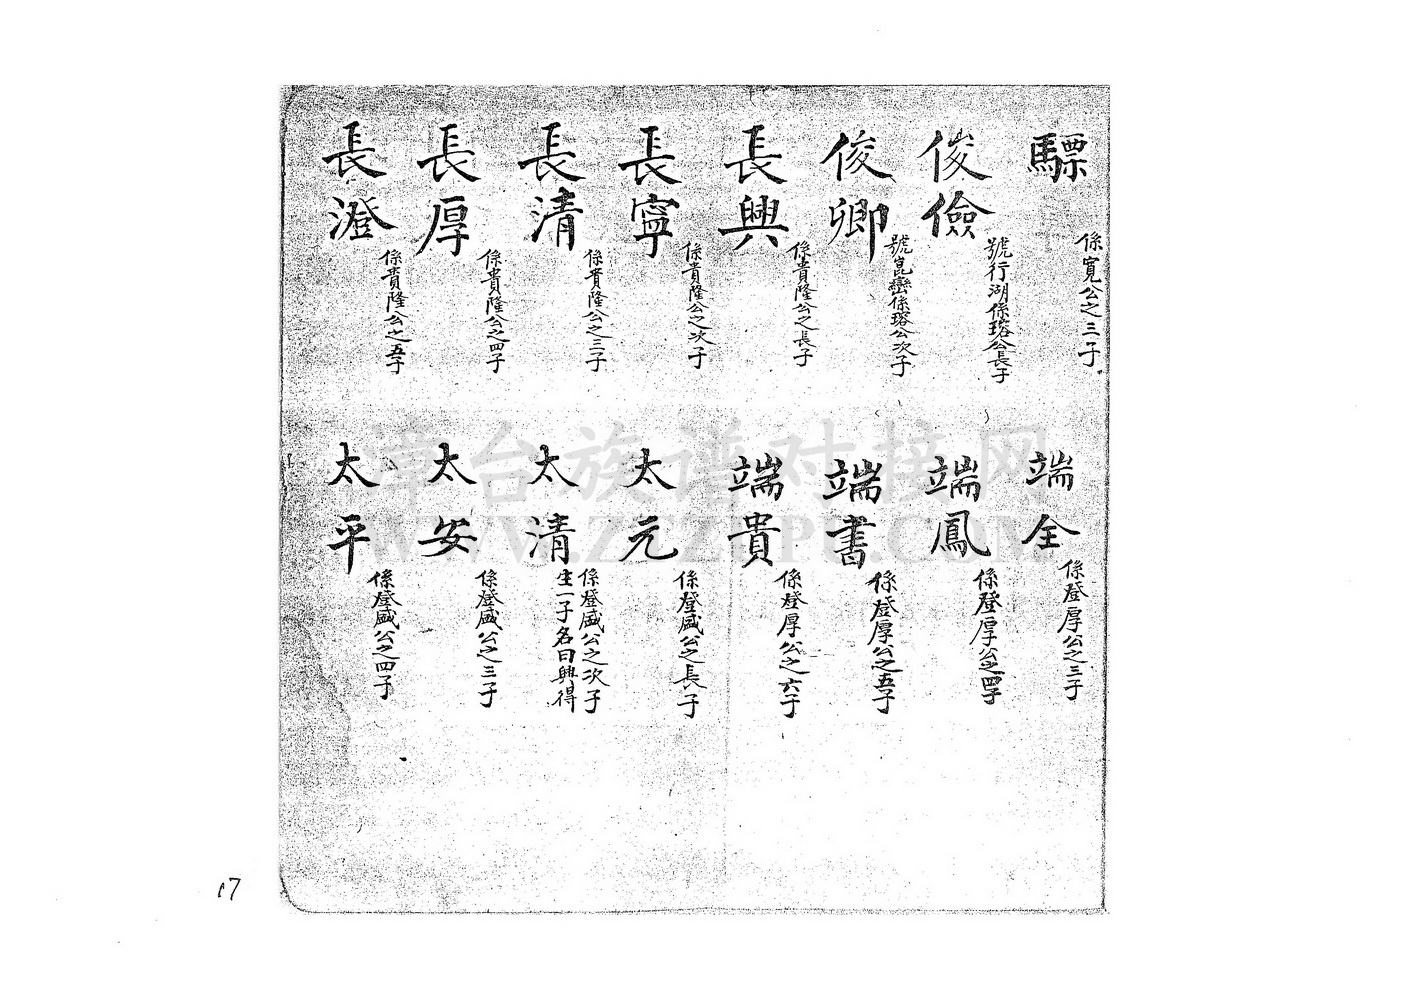 驃
係寬公之三子
俊儉
號行湖係瑢公長子
俊卿
號崑巒係瑢公次子
長興
係貴隆公之長子
長寧
係貴隆公之次子
長清
係貴隆公之三子
長厚
係貴隆公之四子
長澄
係貴隆公之五子
端全
係登厚公之三子
端鳳
係登厚公之四子
端書
係登厚公之五子
端貴
係登厚公之六子
太元
係登盛公之長子
太清
係登盛公之次子
生一子名曰興得
太安
係登盛公之三子
太平
係登盛公之四子
漳台族谱对接网
WWW.ZTZUPU.COM
17